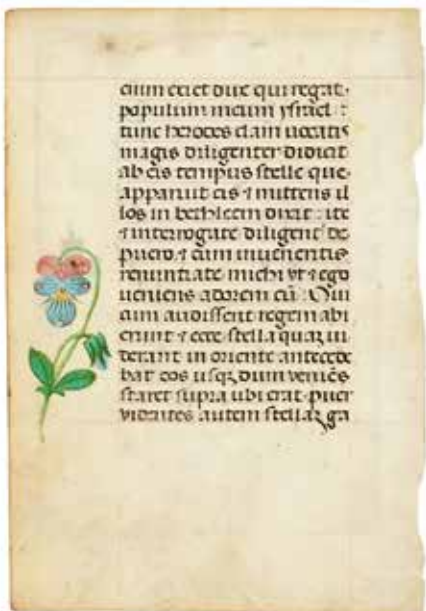 cium exiet dux qui regat
populum meum ysrael :
tunc herodes clam uocatis
magis diligenter didicit
ab eis tempus stelle que
apparuit eis ⁊ mittens il
los in bethleem dixit : ite
⁊ interrogate diligent' de
puero ⁊ cum inueneritis
renuntiate michi vt ⁊ ego
ueniens adorem eū : Qui
cum audissent regem abi
erunt ⁊ ecce stella quaꝫ ui
derant in oriente antecede
bat eos usqꝫ dum veniēs
staret supra ubi erat puer
videntes autem stellaꝫ ga